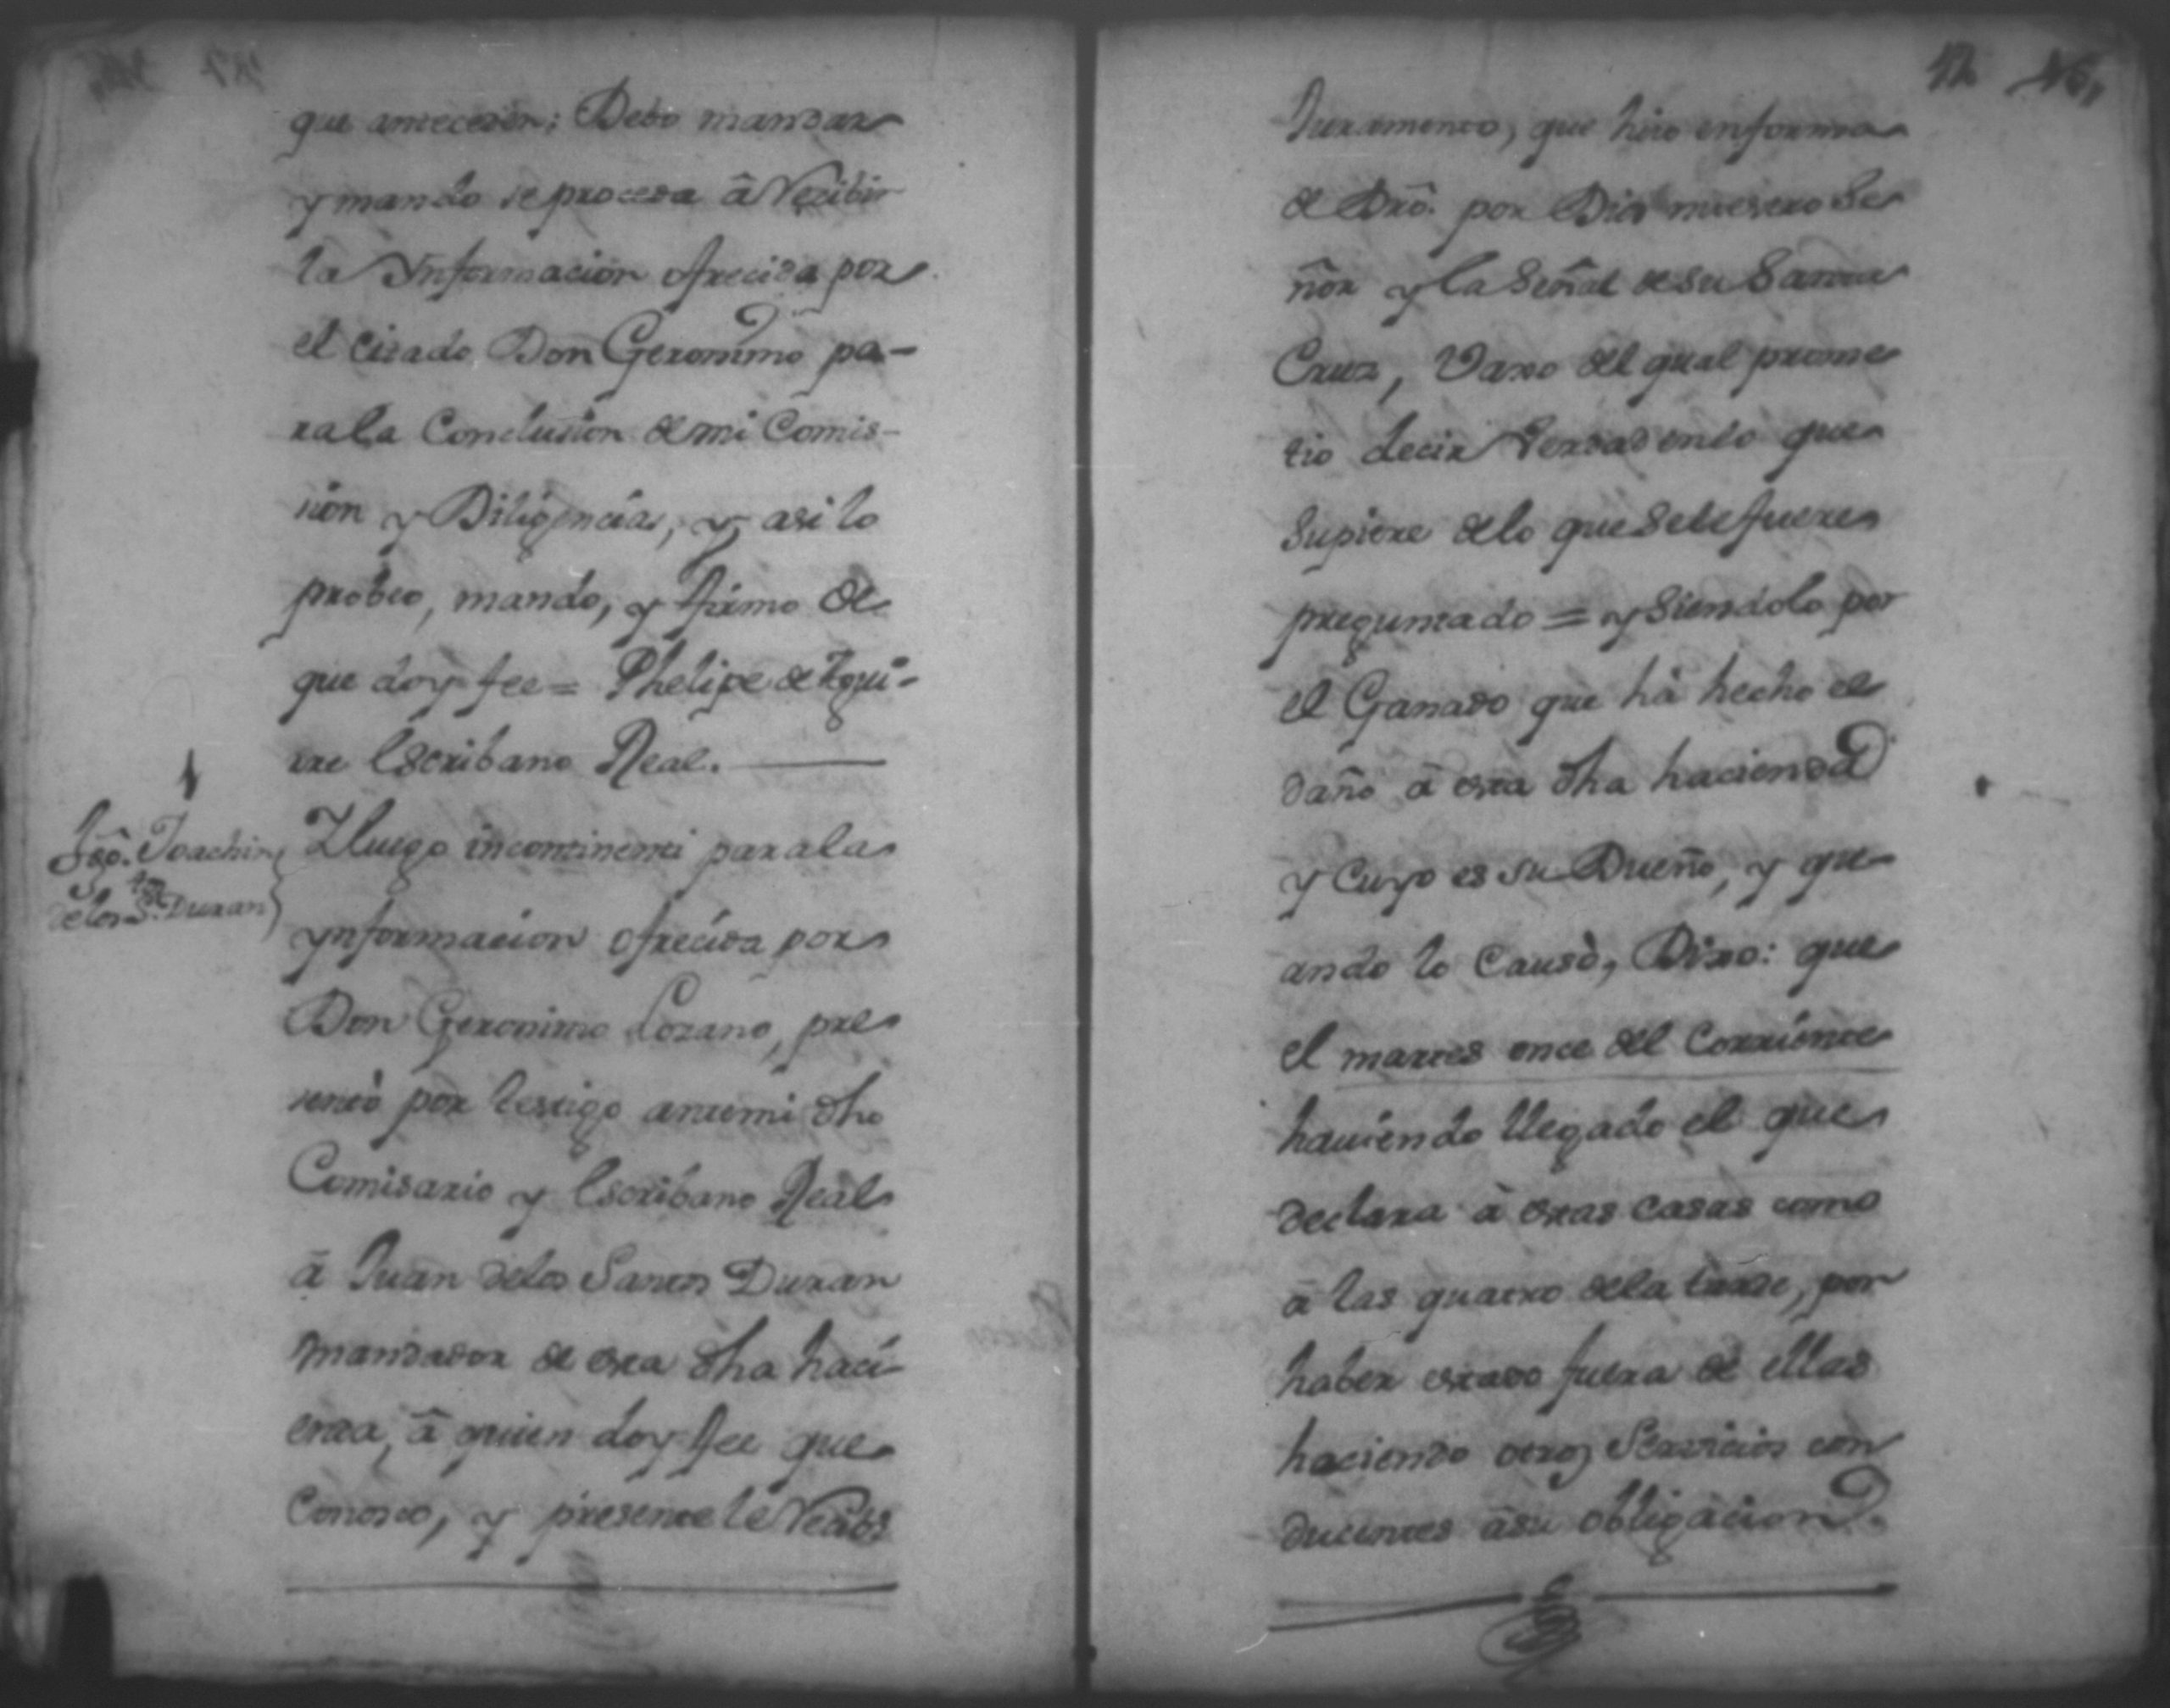 que anteceden; Debo mandar
y mando se proceda â Recibir
la Ynformacion ofrecida por
el citado Don Geronimo pa-
rala Conclusion de mi Comis-
sion y Diligencias, y asi lo
probeo, mando, y firmo de
que doy fee = Phelipe de Agui-
rre Escribano Real.
Tgo. Joachin
delos Stos. Duran
Yluego incontinenti parala
ynformacion ofrecida por
Don Geronimo Lozano, pre
sentò por testigo antemi dho
Comisario y Escribano Real
â Juan delos Santos Duran
mandador de esta dha haci-
enda, â quien doy fee que
Conosco, y presente le Recibi
12
Juramento, que hizo enforma
de Dro. por Dios nuestro Se
ñor y la Señal de su Santa
Cruz, Vaxo del qual prome
tio decir Verdad enlo que
Supiere delo que Sele fuere
preguntado = y Siendolo por
el Ganado que hà hecho el
daño â esta dha hacienda
y Cuyo es su Dueño, y qu
ando lo Causò, Dixo: que
el martes once del Corriente
haviendo llegado el que
declara â estas casas como
â las quatro dela tarde, por
haber estado fuera de ellas
haciendo otros Servicios con
ducentes âsu obligacion